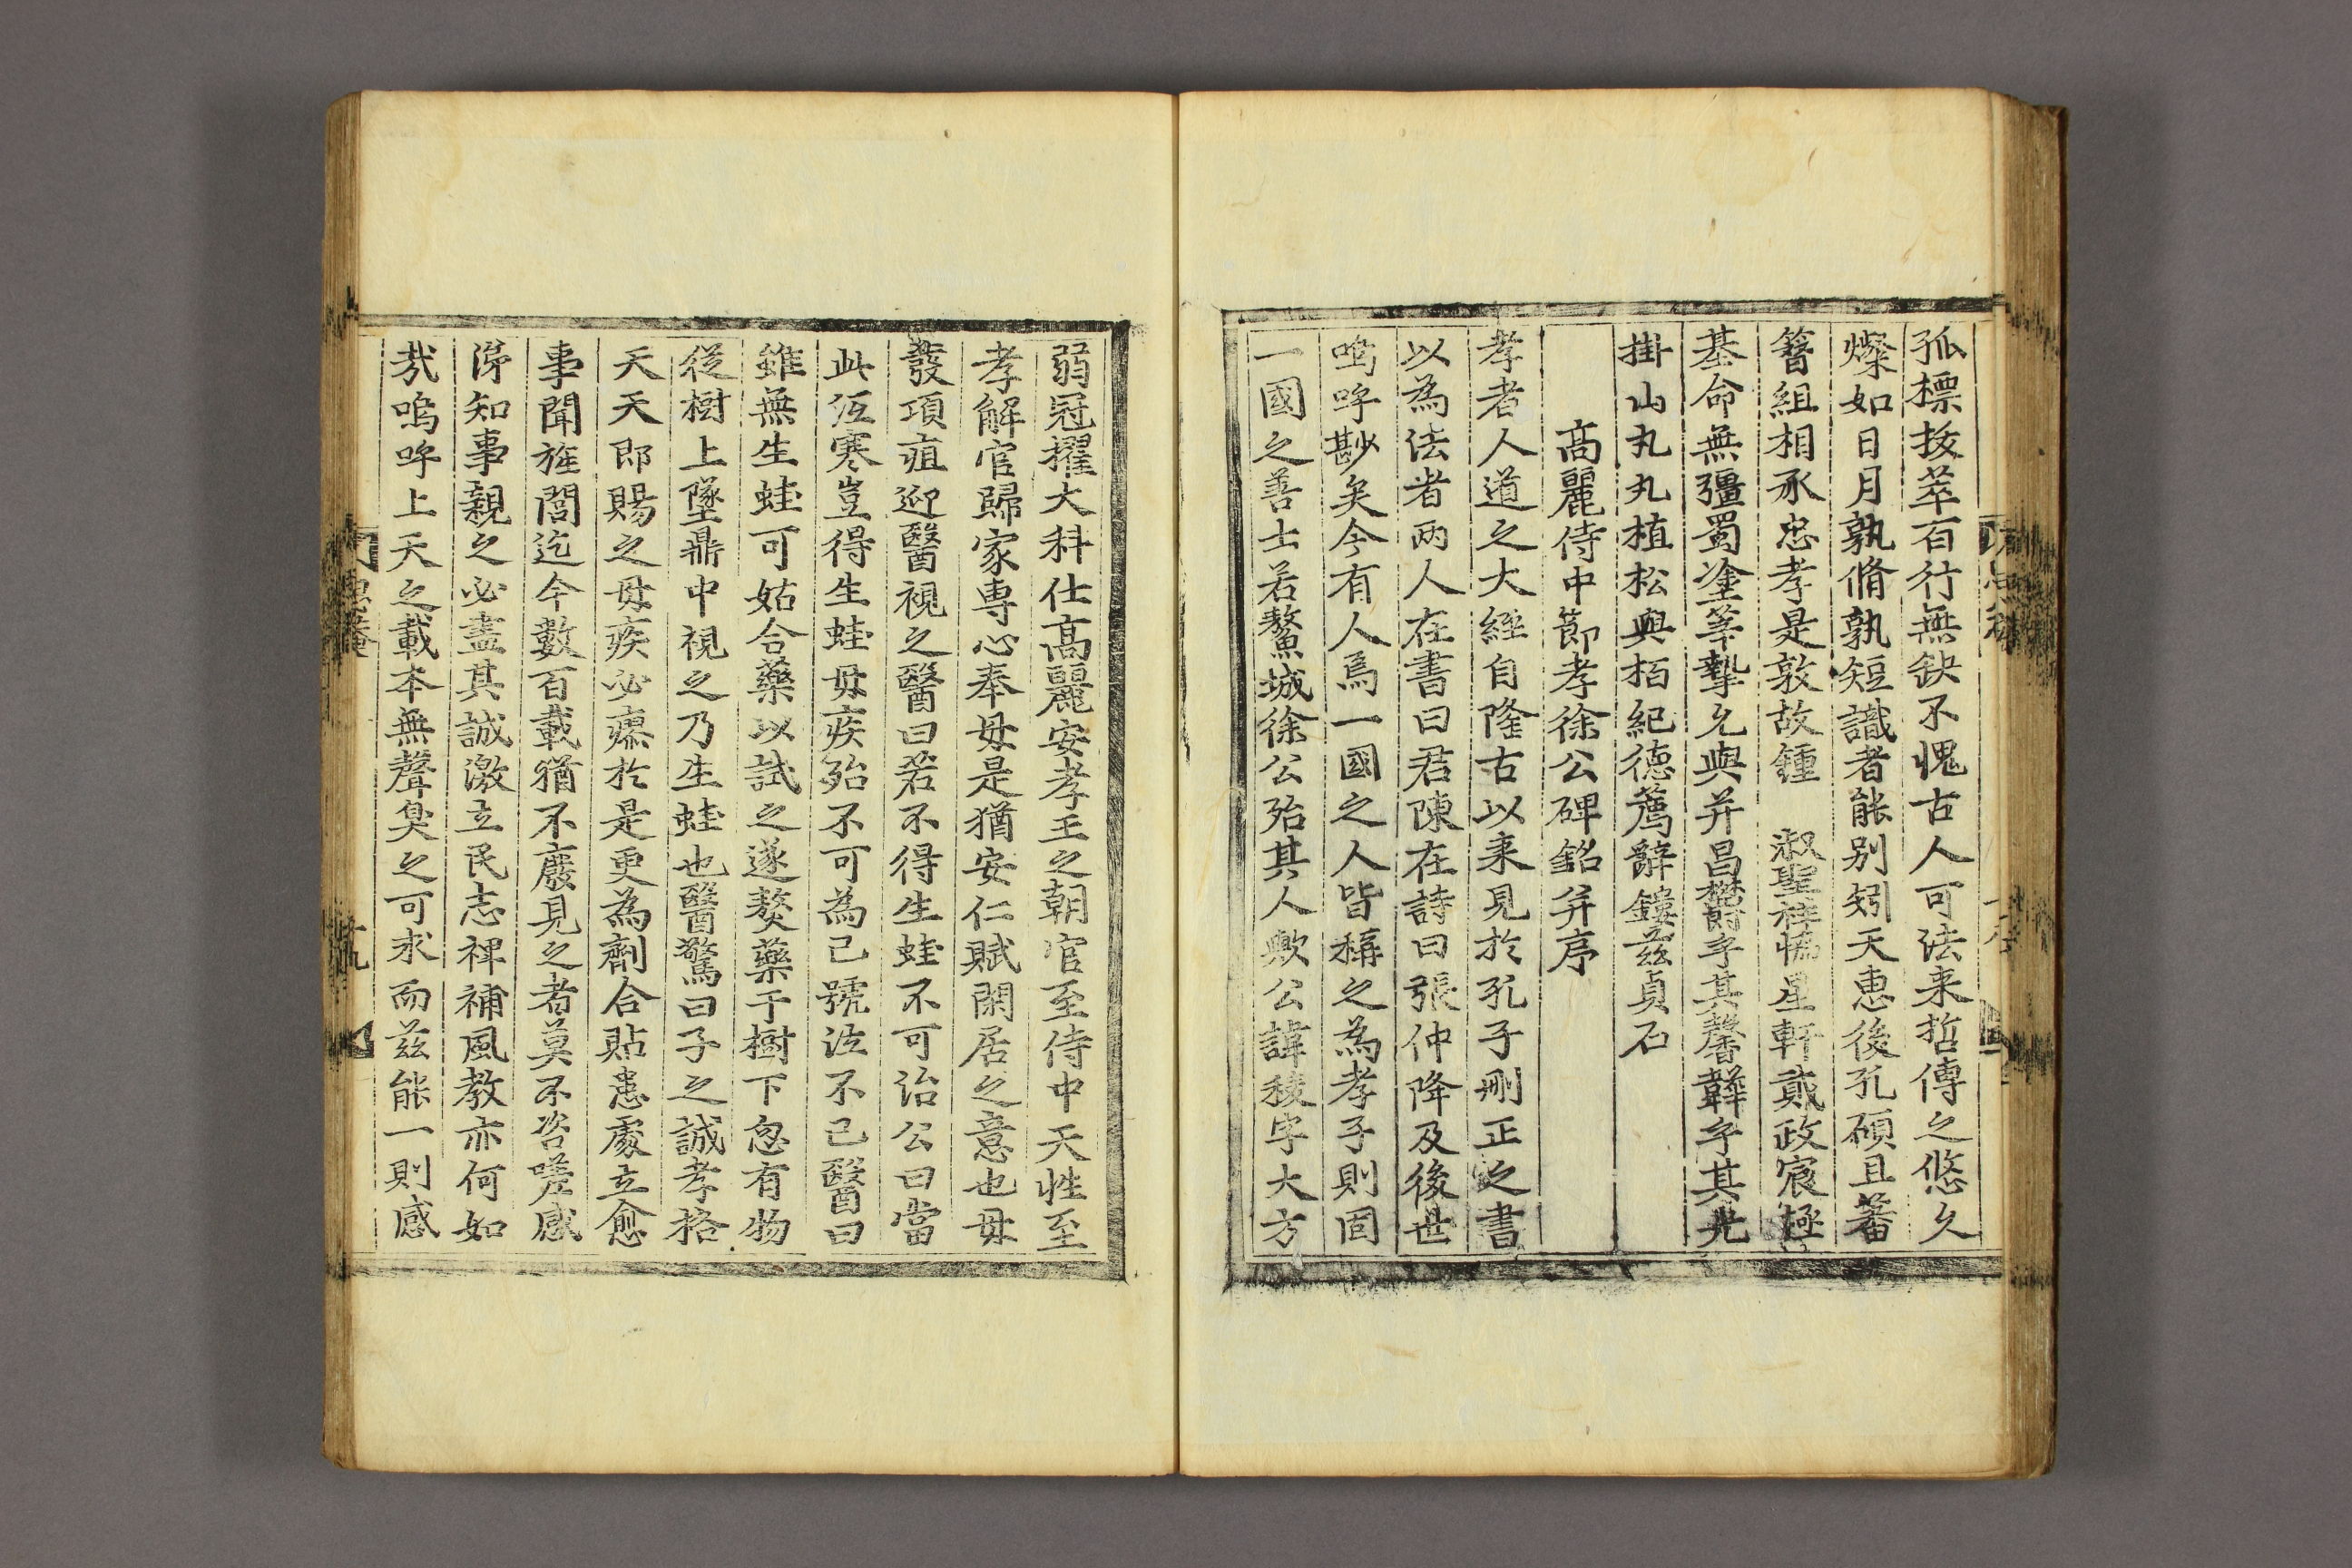 孤標拔萃百行無缺不愧古人可法来哲傳之悠久
燦如日月孰脩孰短識者能別矧天惠後孔碩且蕃
簪組相承忠孝是敦故鍾 淑聖禕惟星軒貳政宸極
基命無彊蜀塗莘摯允與并昌欝乎其馨韡乎其光
掛山丸丸植松與栢紀德薦辭鏤兹貞石
高麗侍中節孝徐公碑銘并序
孝者人道之大經自隆古以来見於孔子刪正之書
以為法者兩人在書曰君陳在詩曰張仲降及後世
嗚呼尠矣今有人焉一國之人皆稱之為孝子則固
一國之善士若鰲城徐公殆其人歟公諱稜字大方
弱冠擢大科仕高麗安孝王之朝官至侍中天性至
孝解官歸家專心奉母是猶安仁賦閑居之意也母
發項疽迎醫視之醫曰若不得生蛙不可治公曰當
此沍寒豈得生蛙母疾殆不可為已號泣不已醫曰
雖無生蛙可姑合藥以試之遂熬藥于樹下忽有物
從樹上墜鼎中視之乃生蛙也醫驚曰子之誠孝格
天天即賜之母疾必瘳於是更為劑合貼患處立愈
事聞旌閭迄今數百載猶不廢見之者莫不咨嗟感
涕知事親之必盡其誠激立民志裨補風教亦何如
哉嗚呼上天之載本無聲臭之可求而兹能一則感